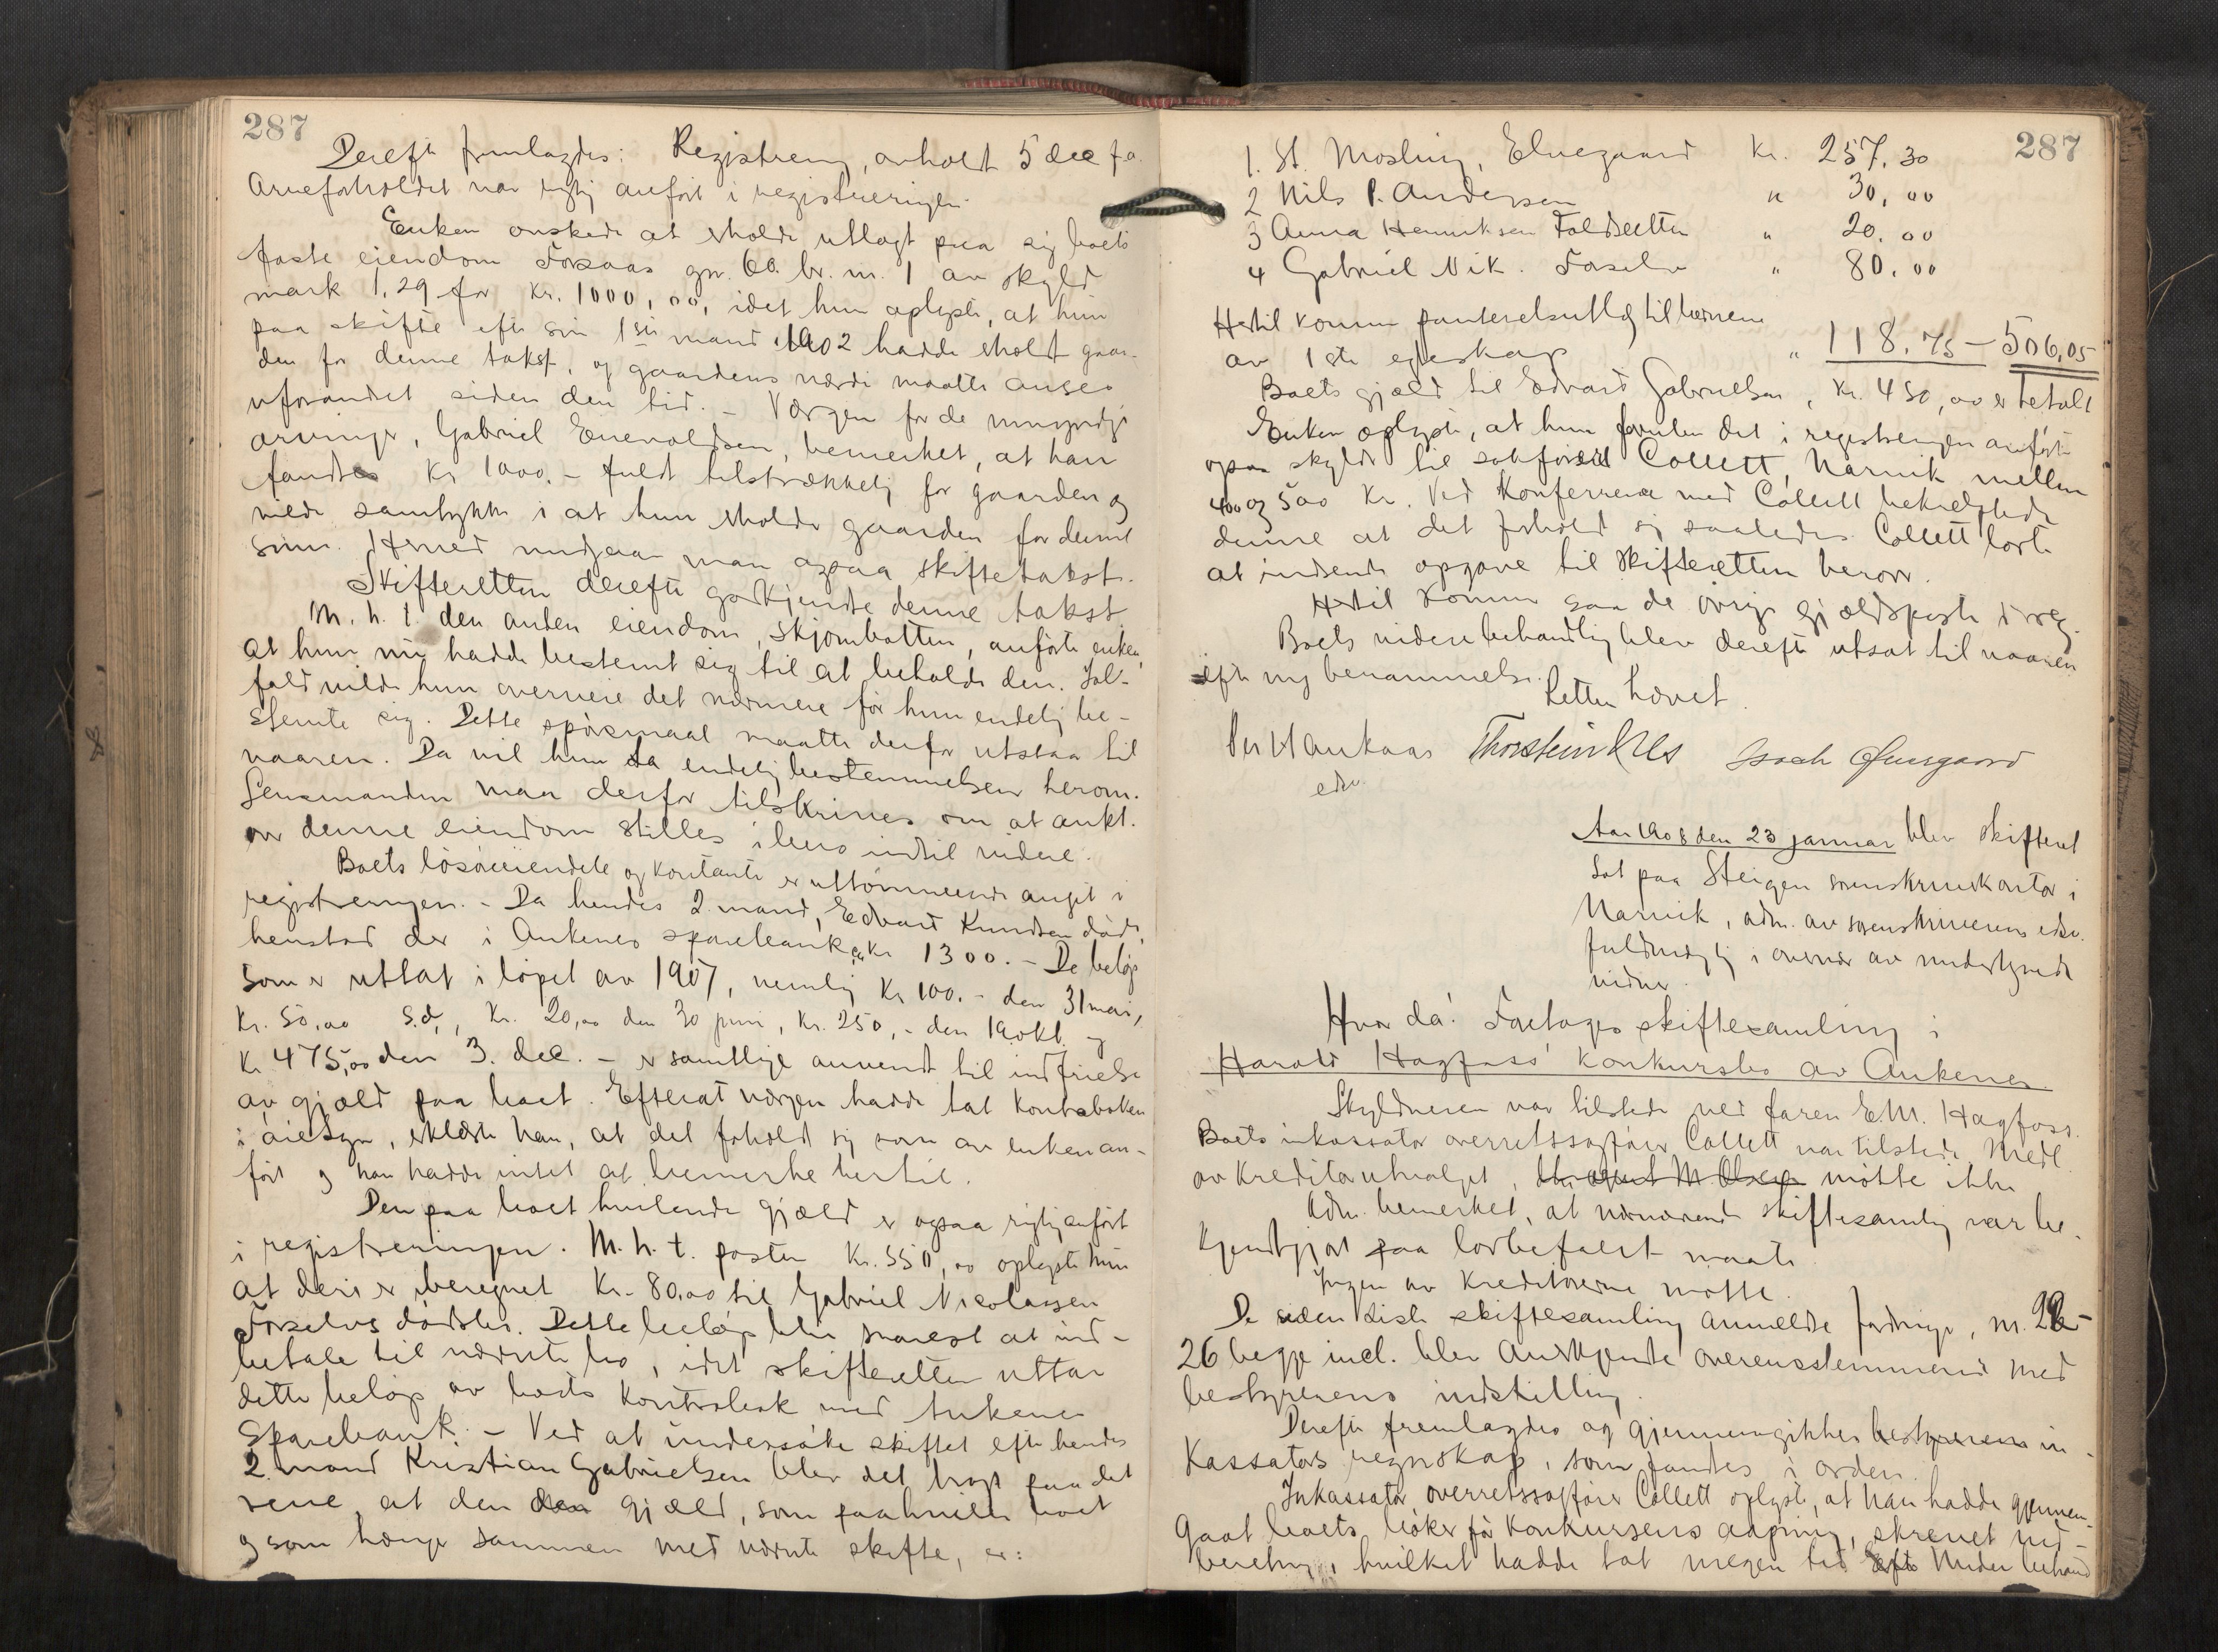 287
Derefter fremlagdes: Registrering, avholdt 5 dec f.a.
Arveforholdet var rigtig anført i registreringen.
Enken ønskede at erholde utlagt paa sig boets
faste eiendom Forsaas gnr. 60. br. nr. 1 av skyld
mark 1,29 for Kr. 1000,00, idet hun oplyste, at hun
paa skifte efter sin 1ste mand i 1902 hadde erholdt gaar-
den for denne takst, og gaardens værdi maatte anses
uforandret siden den tid. - Værgen for de umyndige
arvinger, Gabriel Enevoldsen, bemerket, at han
fandt Kr 1000.- fuldt tilstrækkelig for gaarden og
vilde samtykke i at hun erholdt gaarden for denne
sum. Herved undgaar man ogsaa skiftetakst.
Skifteretten derefter godkjendte denne takst.
M. h. t. den anden eiendom, Skjombotten, anførte enken,
at hun nu hadde bestemt sig til at beholde den. Ial-
fald vilde hun overveie det nærmere før hun endelig be-
stemte sig. Dette spørsmaal maatte derfor utstaa til
vaaren. Da vil hun ta endelig bestemmelsen herom.
Lensmanden maa derfor tilskrives om at aukt.
over denne eiendom stilles i bero indtil videre.
Boets løsøreiendele og kontanter er uttømmende angit i
registreringen. - Da hendes 2. mand, Edvard Knudsen døde,
henstod der i Ankenes sparebank ca Kr 1300. - De beløp
som er uttat i løpet av 1907, nemlig Kr 100.- den 31 mai,
Kr. 50,00 s.d., Kr. 20,00 den 30 juni, Kr. 250,- den 19 okt. og
Kr. 475,00 den 3. dec. - er samtlige anvendt til indfrielse
av gjæld paa boet. Efterat værgen hadde tat kontraboken
i øiesyn, erklærte han, at det forholdt sig som av enken an-
ført og han hadde intet at bemerke hertil.
Den paa boet hvilende gjæld er ogsaa rigtig anført
i registreringen. M. h. t. posten Kr. 550,00 oplyste hun
at deri er beregnet Kr. 80,00 til Gabriel Nicolassen
Forselvs dødsbo. Dette beløp blir snarest at ind-
betale til nævnte bo, idet skifteretten uttar
dette beløp av boets kontrabok med Ankenes
Sparebank. - Ved at undersøke skiftet efter hendes
2. mand Kristian Gabrielsen blev det bragt paa det
rene, at den den gjæld, som paahviler boet
og som hænger sammen med nævnte skifte, er:
287
1. St. Mosling, Elvegaard Kr. 257,30
2 Nils P. Andersen " 30,00
3 Anna Henriksen Foldsletten " 20,00
4 Gabriel Nik. Forselv " 80,00
Hertil kommer panterelsutlæg til børnene
av 1ste egteskap " 118,75 - 506,05
Boets gjæld til Edvard Gabrielsen, Kr. 450,00 er betalt
Enken oplyste, at hun foruten det i registreringen anførte
ogsaa skylder til sakfører Collett, Narvik mellem
400 og 500 Kr. Ved konference med Collett bekræftede
denne at det forholdt sig saaledes. Collett lovte
at indsende opgave til skifteretten herover.
Hertil kommer saa de øvrige gjældsposter i reg.
Boets videre behandling blev derefter utsat til vaaren
efter ny berammelse.
Retten hævet.
Per Haukaas Thorstein Kils Isach Elvegaard
edsv.
Aar 1908 den 23 januar blev skifteret
sat paa Steigen sorenskriverkontor i
Narvik, adm. av sorenskriverens edsv.
fuldmægtig i overvær av undertegnede
vidner.
Hvor da: Foretages skiftesamling i
Harald Hagfoss' konkursbo av Ankenes
Skyldneren var tilstede ved faren E.M. Hagfoss.
Boets inkassator overretssagfører Collett var tilstede. Medl.
av kreditorutvalget, M. Olsen møtte ikke
Adm. bemerket, at nærværende skiftesamling var be-
kjendtgjort paa lovbefalet maate.
Ingen av kreditorerne møtte.
De siden sidste skiftesamling anmeldte fordringer, nr. 22-
26 begge incl. blev anerkjendte overensstemmende med
bestyrerens indstilling.
Derefter fremlagdes og gjennemgikkes bestyrerens in-
kassators regnskap, som fandtes i orden.
Inkassator, overretssagfører Collett oplyste, at han hadde gjennem-
gaat boets bøker før konkursens aapning, skrevet ind-
beretning, hvilket hadde tat megen tid Under behand